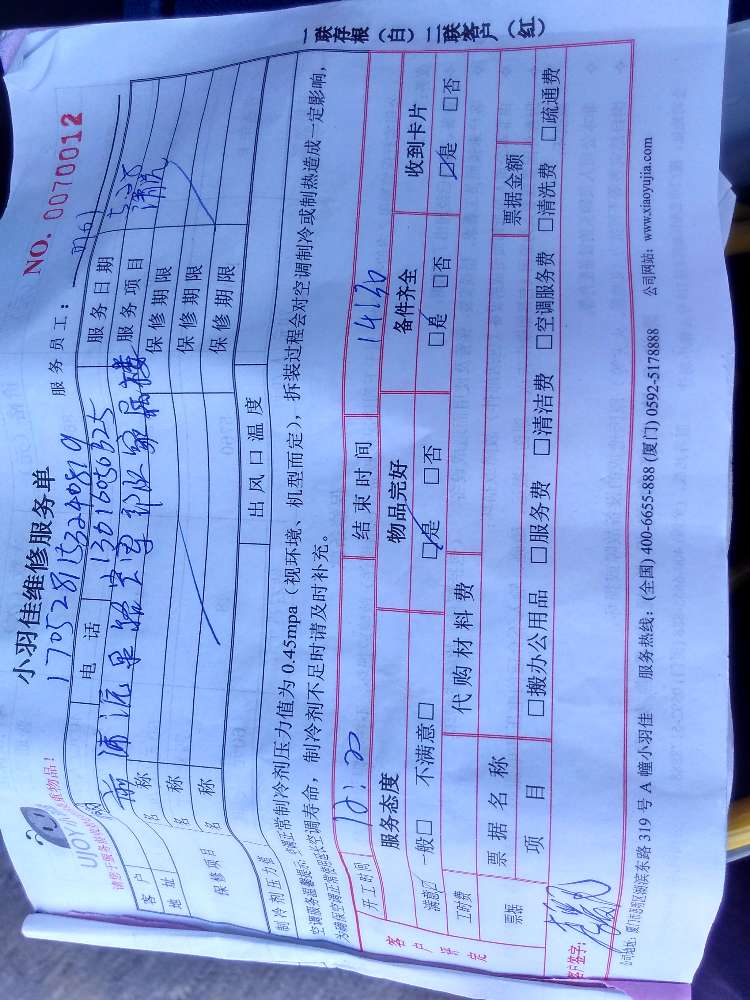 一联存根（白）二联客户（红）
NO. 0070012
小羽佳维修服务单
UJOY
17052811533240819
服务员工：
客户
电话
13616056325
服务日期
地址
服务项目
清洗
保修项目
名称
保修期限
名称
保修期限
名称
保修期限
制冷剂压力值
出风口温度
空调服务温馨提示：空调正常制冷剂压力值为0.45mpa（视环境、机型而定），拆装过程会对空调制冷或制热造成一定影响，
为确保空调正常使用延长空调寿命，制冷剂不足时请及时补充。
客户评定
开工时间
结束时间
14:30
服务态度
物品完好
备件齐全
收到卡片
满意☑ 一般□ 不满意□
☑是 □否
☑是 □否
☑是 □否
工时费
代购材料费
票据
票据名称
票据金额
项目
□搬办公用品 □服务费 □清洁费 □空调服务费 □清洗费 □疏通费
客户签字：
公司地址：厦门市思明区湖滨东路319号A幢小羽佳 服务热线：(全国) 400-6655-888 (厦门) 0592-5178888 公司网站：www.xiaoyujia.com